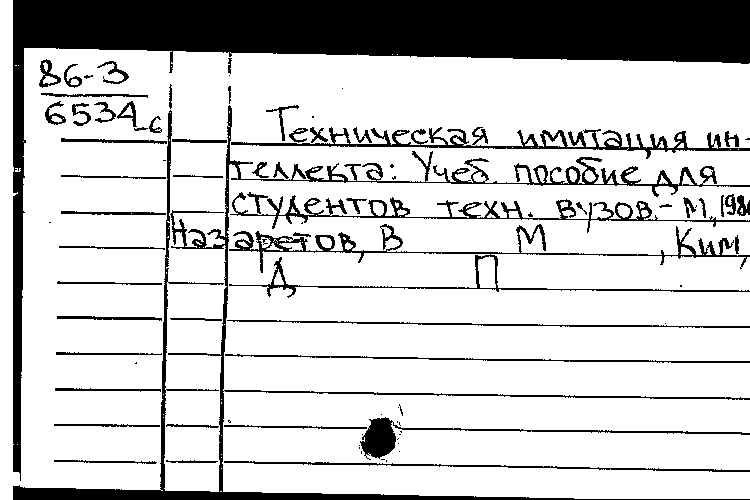 86-3
6534-6
Техническая имитация ин-
теллекта: Учеб. пособие для
студентов техн. вузов.- М., 198
Назаретов, В М , Ким,
Д П